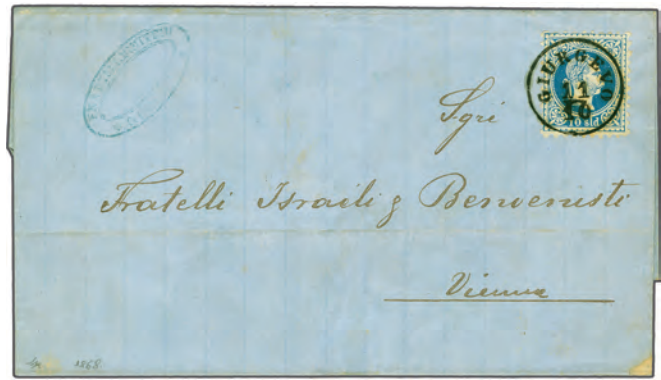 GIURGEVO
11
10
10 sld
Sgri
Fratelli Israili & Benvenisti
Vienna
1868